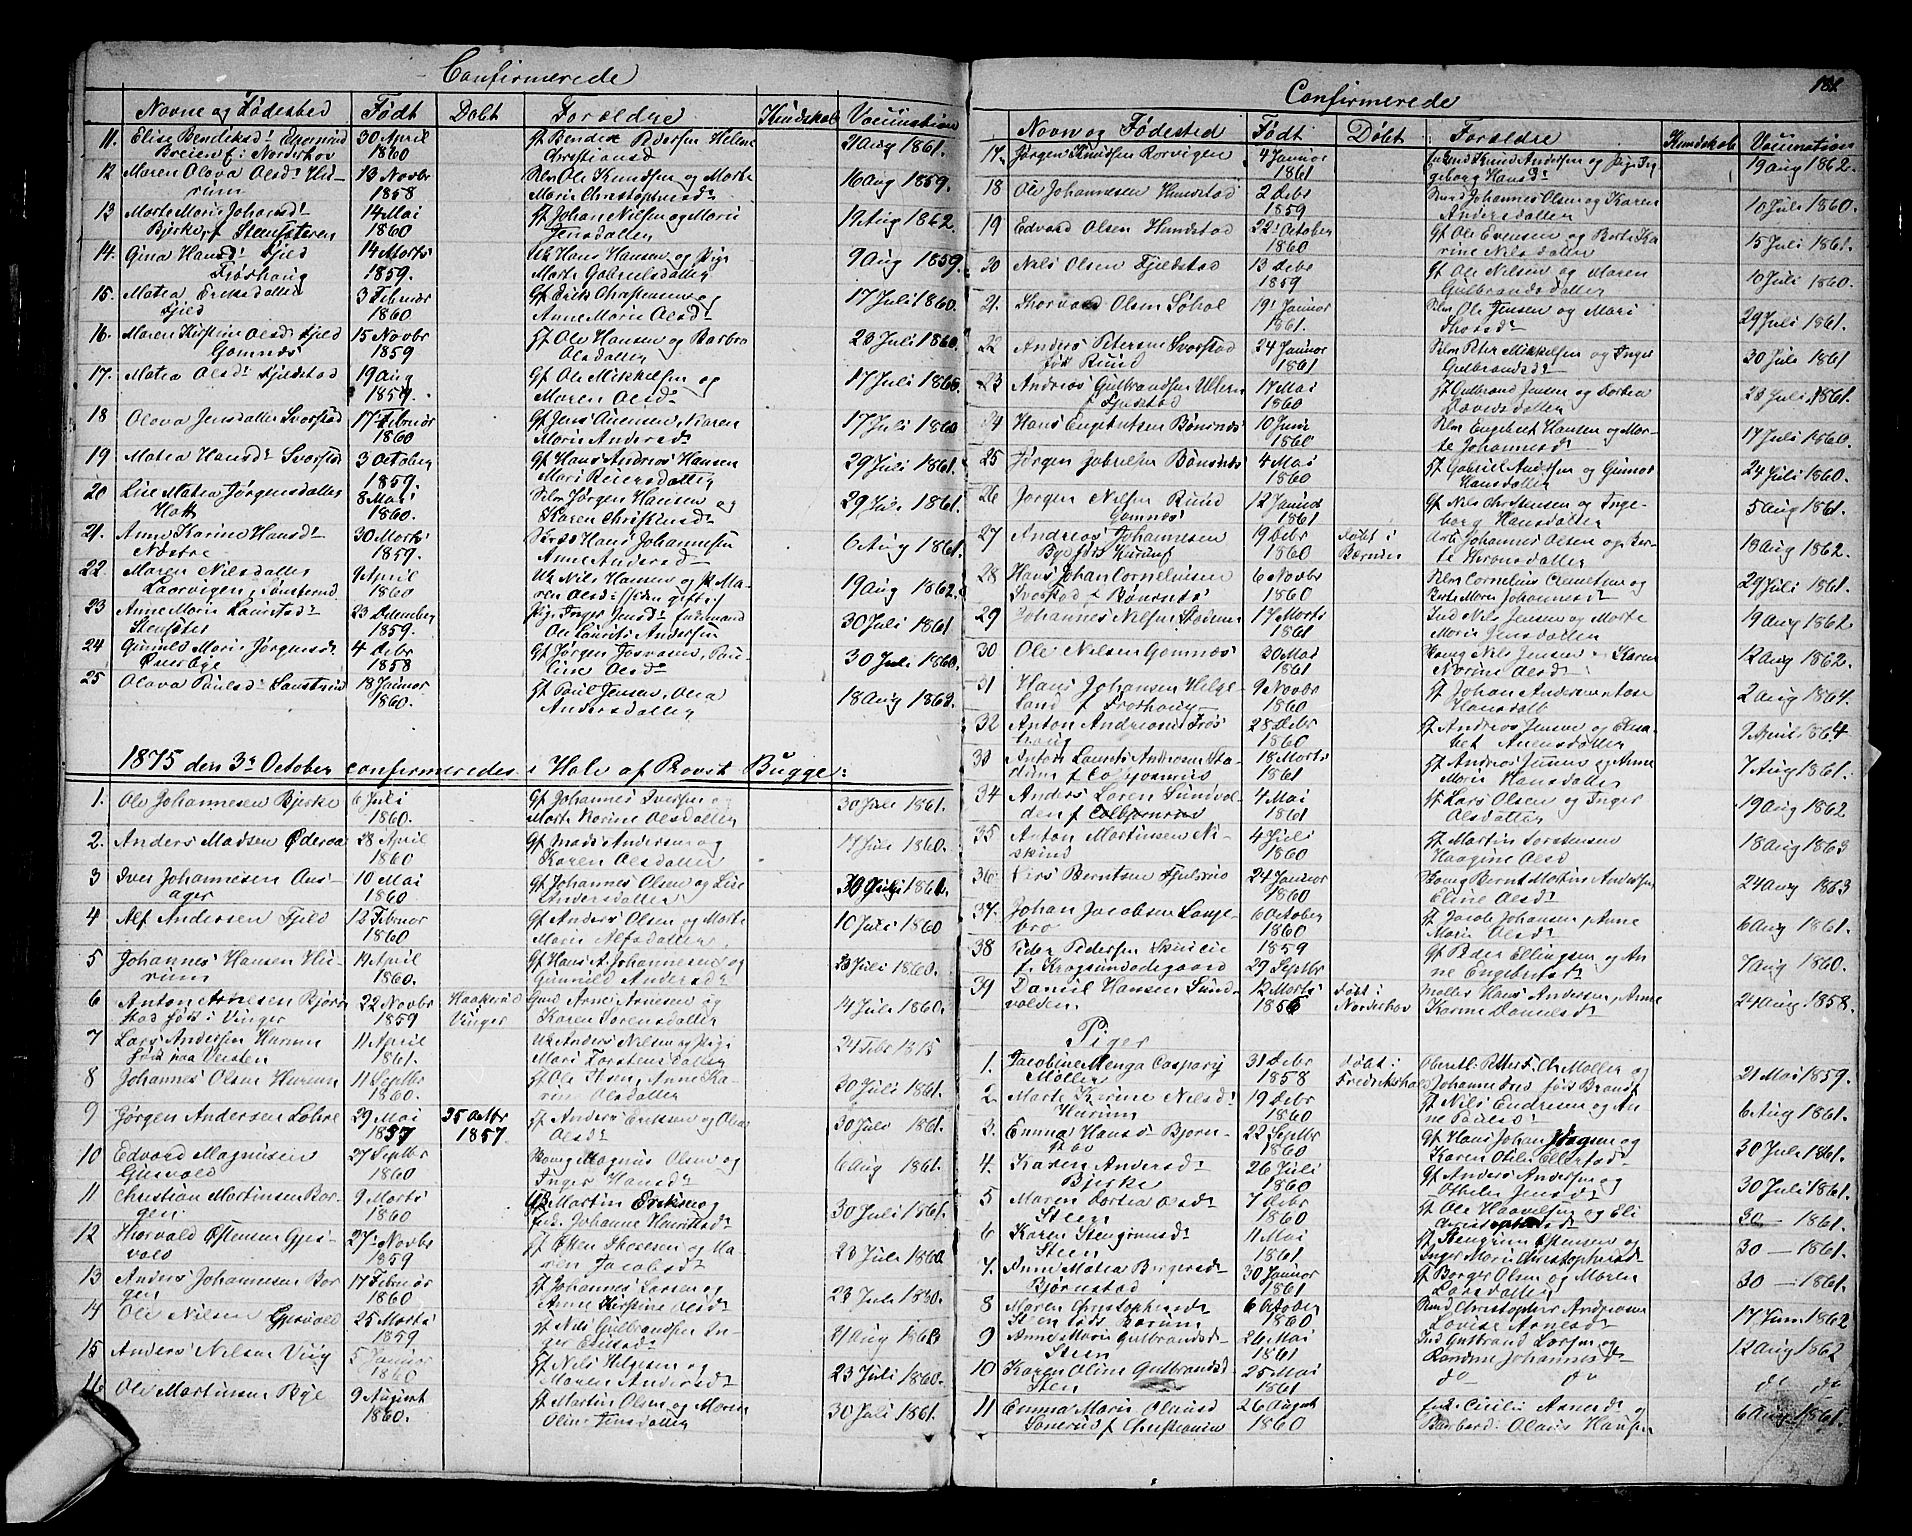 Confirmerede
Navne og Fødested Født Døbt Forældre Kundskab Vaccination
11. Elise Bendiksd: 30 April Gf Bendik Pedersen Helene 21 Aug 1861.
Breien f: Norderhov 1860 Christiansd
12 Maren Olava Olsd: Hu- 13 Novbr Ole Knudsen og Marte 16 Aug 1859.
rum 1858 Marie Christophersd:
13 Marte Marie Johansd: 14 Mai Gf Johan Nilsen og Marie 12 Aug 1862.
Bjerke f 1860 Jensdatter
14. Gina Hansd: Fjeld 14 Marts Hans Hansen og Pige 9 Aug 1859.
Frøshaug 1859. Marte Gabrielsdatter
15. Matea Eriksdatter 3 Februar Gf Eriks Christensen og 17 Juli 1860.
Fjeld 1860 Anne Marie Olsd:
16. Maren Kirstine Olsd: Fjeld 15 Novbr Gf Ole Hansen og Barbra 23 Juli 1860.
Gomnæs 1859 Olsdatter
17. Matea Olsd: Fjeldstad 19 Aug Gf Ole Mikkelsen og 17 Juli 1860
1859. Maren Olsd:
18 Olava Jensdatter Svarstad 17 Februar Gf Jens Karen 17 Juli 1860
1860 Marie Andersd:
19 Matea Hansd: Svarstad 3 October Gf Hans Andreas Hansen 29 Juli 1861.
1859. Mari Reiersdatter
20 Lise Matea Jørgensdatter 8 Mai Jørgen Hansen og 29 Juli 1861.
1860. Karen Christiansd:
21. Anne Karine Hansd: 30 Marts Hans Johannesen 6 Aug 1861.
Næstre 1859. Anne Andersd:
22 Maren Nilsdatter 9 April Nils Hansen og p Ma- 19 Aug 1862.
1860 ren Olsd: (siden gifte)
23 Anne Marie Lauritsd: 23 December Pige Inger Jensd: 30 Juli 1861
1859. Ole Laurits Andersen
24 Gunild Marie Jørgensd: 4 Debr Gf Jørgen Pau- 30 Juli 1860.
1858 line Olsd:
25 Olava Paulsd: 18 Januar Gf Paul Jensen, Olea 18 Aug 1862.
1860. Andersdatter
1875 den 3: October confirmeredes i Hole af Provst Bugge:
1. Ole Johannesen Bjerke 6 Juli Gf Johannes Iversen og 30 Juli 1861.
1860. Marte Karine Olsdatter
2. Anders Madsen Øderaa 28 April Gf Mads Andersen og 17 Juli 1860.
1860 Karen Olsdatter
3 Iver Johannesen 10 Mai Gf Johannes Olsen og Lise 30 Juli 1861.
ager 1860 Andersdatter
4 Alf Andersen Fjeld 12 Februar Gf Anders Olsen og Marte 10 Juli 1860
1860 Marie Alfsdatter
5 Johannes Hansen Hu- 14 April Gf Hans A. Johannesen og 23 Juli 1860.
rum 1860. Gunnild Andersd:
6 Anton Arnesen Bjørn- 22 Novbr Arne Arnesen og 4 Juli 1860
stad født i Vinger 1859 Vinger Karen Torensdatter
7 Lars Andersen Hurum 11 April Anders Nilsen og Pige
født paa Vestern 1861. Mari Torstensdatter
8 Johannes Olsen Hurum 11 Septbr Gf Ole Anne Ka- 30 Juli 1861.
1860. rine Olsdatter
9 Jørgen Andersen Løhre 29 Mai 25 Octbr Gf Anders Eriksen og Olea 30 Juli 1861.
1857 1857. Olsd:
10 Edvard Magnusen 27 Septbr Magnus Olsen og 6 Aug 1861.
Gusvold 1860 Inger Hansd:
11 Christian Martinsen Bor- 9 Marts Martin Eriksen og 30 Juli 1861.
gen 1860 Johanne Henriksd:
12 Thorvald Østensen Gjes- 27 Novbr Gf Østen Thoresen og Ma- 23 Juli 1860
vold 1859 ren Jacobsd:
13 Anders Johannesen Bor- 17 Februar Gf Johannes Larsen og 23 Juli 1860.
gen 1860 Anne Kirstine Olsd:
14 Ole Nilsen Gjesvold 25 Marts Gf Nils Gulbrandsen In- 21 Aug 1860
1859 ger
15 Anders Nilsen Viig 5 Januar Gf Nils Helgesen og 23 Juli 1860.
1860 Maren Andersd:
16 Ole Martinsen Bye 9 August Gf Martin Olsen og Maren 30 Juli 1861.
1860. Oline Jensdatter
181.
Confirmerede
Navn og Fødested Født Døbt Forældre Kundskab Vaccination
17. Jørgen Knudsen Rørvigen 4 Januar Knud Andersen og Pige In- 19 Aug 1862.
1861 geborg Hansd:
18 Ole Johannesen Hundstad 2 Debr Johannes Olsen og Karen 10 Juli 1860.
1859 Andersdatter
19 Edvard Olsen Hundstad 22 October Gf Ole Evensen og Berte Ka- 15 Juli 1861.
1860 rine Nilsdatter
20 Nils Olsen Fjeldstad 13 Debr Gf Ole Nilsen og Maren 10 Juli 1860.
1859 Gulbrandsdatter
21. Thorvald Olsen Søhol 19 Januar Ole Jensen og Mari 29 Juli 1861.
1861. Thorsd:
22 Anders Petersen Svarstad 24 Januar Peter Mikkelsen og Inger 30 Juli 1861
1861 Gulbrandsd:
23 Andreas Gulbrandsen Ulern 17 Mai Gf Gulbrand Jensen og Dorthea 23 Juli 1861.
f Fjeldstad 1860 Davidsdatter
24 Hans Engebretsen Bønsnæs 10 Juni Engebret Hansen og Mar- 17 Juli 1860.
1860 te Johannesd:
25 Jørgen Gabrielsen Bønsnæs 4 Mai Gf Gabriel Andersen og Gunor 24 Juli 1860.
1860 Hansdatter
26 Jørgen Nilsen Rund 12 Januar Gf Nils Christensen og Inge- 5 Aug 1861.
Gomnæs 1861 borg Hansdatter
27 Andreas Johannesen 19 Debr Døbt i Johannes Olsen og Ber- 18 Aug 1862.
Bye født Hurum 1860 te
28 Hans Johan Corneliusen 6 Novbr Cornelius og 29 Juli 1861.
Svarstad f Bønsnæs 1860 Berte Maren Johannesd:
29 Johannes Nilsen 17 Marts Ind Nils Jensen og Marte 19 Aug 1862
1861 Marie Jensdatter
30 Ole Nilsen Gomnæs 20 Mai Nils Jensen Karen 12 Aug 1862.
1861 Norine Olsd:
31 Hans Johansen Helge- 9 Novbr Gf Johan Andersen 2 Aug 1864.
land f Frøshaug 1860 Hansdatt:
32 Anton Andreasen Frøs- 28 Debr Gf Andreas Jensen og 9 April 1864
haug 1860
33 Anton Laurits Andersen 18 Marts Gf Anders og Anne 7 Aug 1861.
1861 Marie Hansdatter
34 Anders Larsen Sundvol- 4 Mai Gf Lars Olsen og Inger 19 Aug 1862
den f 1861 Olsdatter
35 Anton Martinsen 4 Juli Gf Martin Torstensen 18 Aug 1863
1860 Olsd
36 Berntsen 24 Januar Bernt Martin Andersen 24 Aug 1863
1860 Eline Olsd:
37. Johan Jacobsen Lange- 6 October Gf Jacob Johansen, Anne 6 Aug 1861.
bro 1860 Marie Olsd:
38 Peder Pedersen 1859 Gf Peder Ellingsen og An- 7 Aug 1860.
f Krogsundødegaard 29 Septbr ne Engebretsd:
39 Daniel Hansen Sund- 12 Marts Døbt i Møller Hans Andersen, Anne 24 Aug 1858.
volden 1856 Norderhov Karine Danielsd:
Piger
1. Jacobine Menga Caspary 31 Debr Døbt i Møller og 21 Mai 1859.
Møller 1858 Fredrikshald Johanne født Brandt
2 Marte Karine Nilsd: 19 Debr Gf Nils Endresen og An- 6 Aug 1861.
Hurum 1860 ne Paulsd:
3. Emma Hansd: Bjørn- 22 Septbr Gf Hans Johan og 30 Juli 1861.
1860 Karen
4. Karen Andersd: 26 Juli Gf Anders Andersen og 30 Juli 1861.
Bjerke 1860 Jensd:
5 Maren Dortea Olsd: 7 Debr Gf Ole Haavelsen og Eli 30 — 1861.
Steen 1860
6 Karen Stengrimsd: 11 Mai Gf Stengrim Østensen og 30 — 1861.
Steen 1861 Inger Marie Christophersd:
7. Anne Matea Borgersd: 30 Januar Gf Borger Olsen og Maren 30 — 1861.
Bjørnstad 1861 Larsdatter
8 Maren Christophersd: 6 October Christopher Andreasen 17 Juni 1862
Steen født Bærum 1860 Lovise Arnesd:
9 Anne Marie Gulbrandsd: 26 Mai Ind Gulbrand Larsen og 12 Aug 1862
Steen 1861 Johannesd:
10 Karen Oline Gulbrandsd: 25 Mai do do do do
Steen 1861
11 Emma Marie Olausd 26 August Cecilie og 6 Aug 1861.
f Christiania 1860 Olaus Hansen